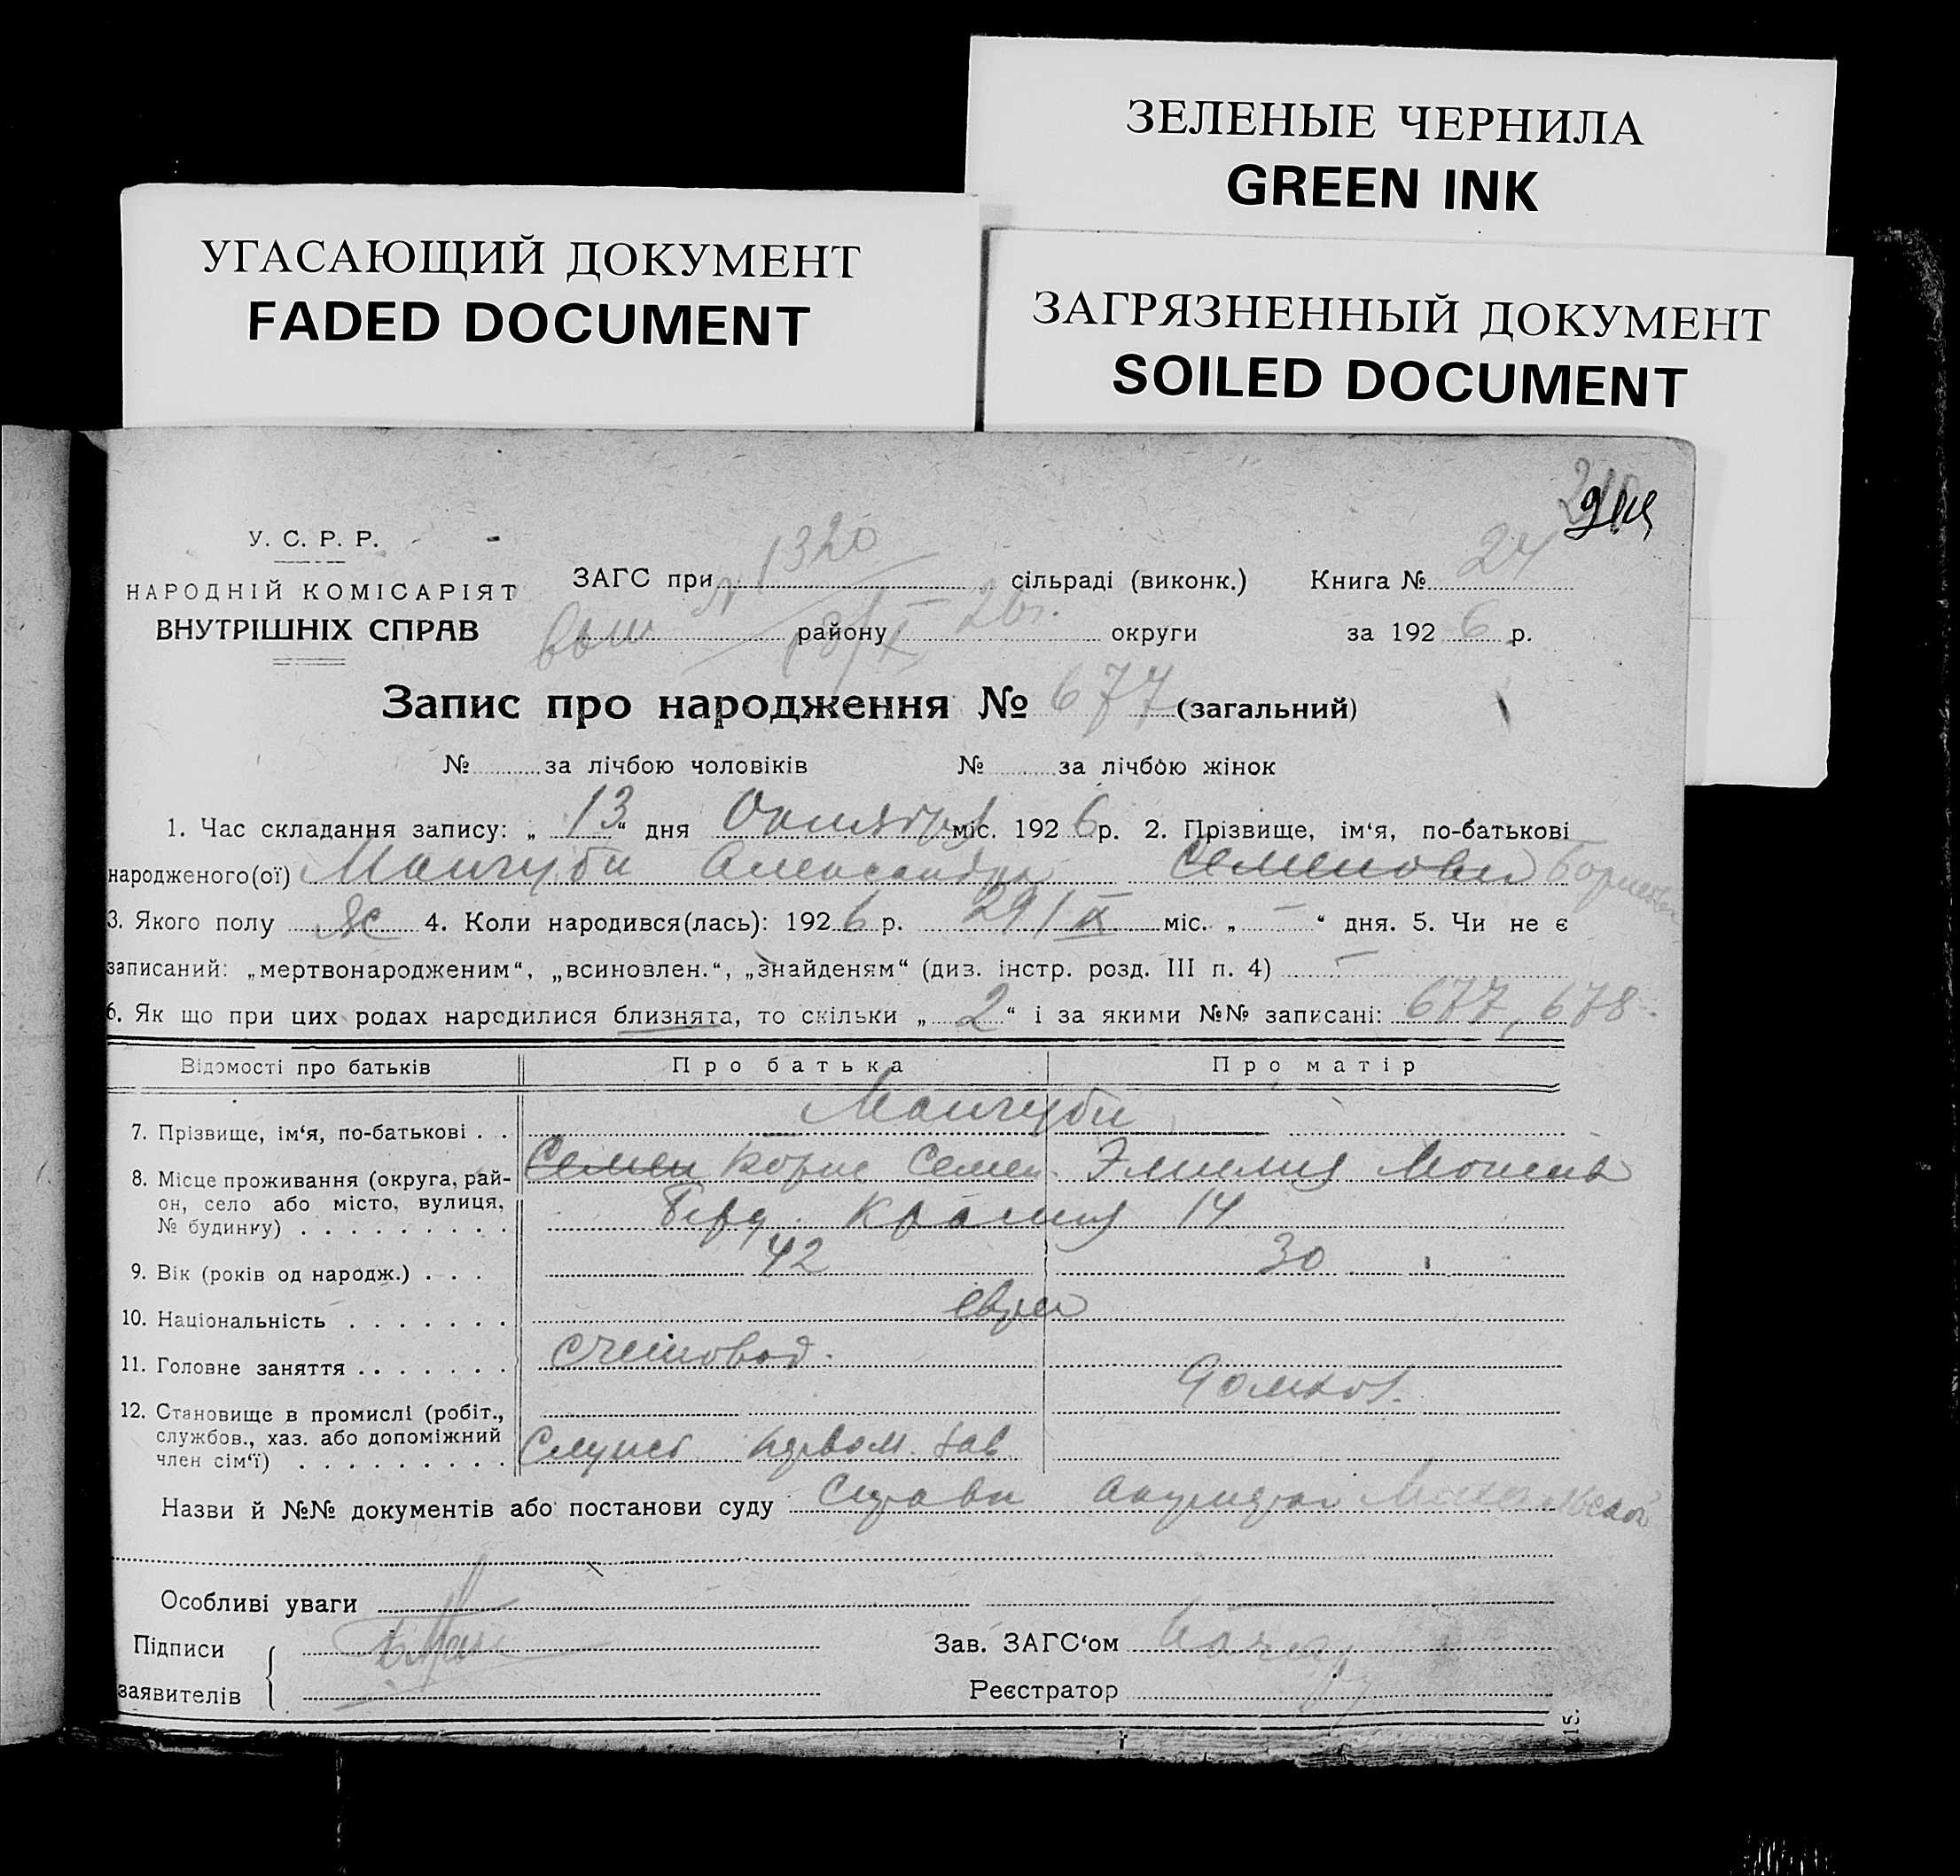 ЗЕЛЕНЫЕ ЧЕРНИЛА
GREEN INK
УГАСАЮЩИЙ ДОКУМЕНТ
FADED DOCUMENT
ЗАГРЯЗНЕННЫЙ ДОКУМЕНТ
SOILED DOCUMENT
У. С. Р. Р.
НАРОДНІЙ КОМІСАРІЯТ
ВНУТРІШНІХ СПРАВ
ЗАГС при № 1320 сільраді (виконк.) Книга № 24
району округи за 1926 р.
Запис про народження № 677 (загальний)
№ за лічбою чоловіків № за лічбою жінок
1. Час складання запису: „ 13 “ дня Октября міс. 1926 р. 2. Прізвище, ім‘я, по-батькові
народженого(ої) Мангуби Александра Семеновна Борисовна
3. Якого полу ж 4. Коли народився(лась): 1926 р. 29/IX міс. „ — “ дня. 5. Чи не є
записаний: „мертвонародженим“, „всиновлен.“, „знайденям“ (див. інстр. розд. III п. 4) —
6. Як що при цих родах народилися близнята, то скільки „ 2 “ і за якими №№ записані: 677, 678
Відомості про батьків Про батька Про матір
7. Прізвище, ім‘я, по-батькові . . Мангуби
Семен Борис Семен. Эмилия
8. Місце проживання (округа, рай-
он, село або місто, вулиця,
№ будинку) . . . . . . . . . Берд. 14
9. Вік (років од народж.) . . . 42 30
10. Національність . . . . . . . евреи
11. Головне заняття . . . . . . . счетовод. домхоз.
12. Становище в промислі (робіт.,
службов., хаз. або допоміжний
член сім‘ї) . . . . . . . . . Первом. зав
Назви й №№ документів або постанови суду справка акушерки
Особливі уваги
Підписи
заявителів
Зав. ЗАГС‘ом
Реєстратор